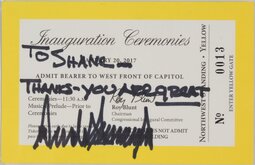 Inauguration Ceremonies
TO SHANE
20, 2017
ADMIT BEARER TO WEST FRONT OF CAPITOL
THANKS-YOU ARE GREAT
Ceremonies—11:30 A.M.
Music Prelude—Prior to
Ceremonies
Roy Blunt
Roy Blunt
Chairman
Congressional Inaugural Committee
NOT ADMIT
NORTHWEST STANDING • YELLOW
No 0013
ENTER YELLOW GATE